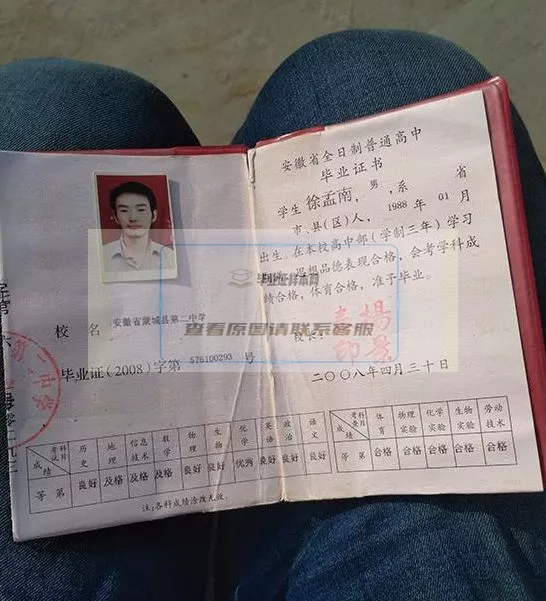 安徽省全日制普通高中
毕业证书
学生 徐孟南, 男, 系 省
市、县(区)人, 1988 年 01 月
出生。在本校高中部(学制三年)学习
思想品德表现合格,会考学科成
绩合格,体育合格,准予毕业。
校长:
楊景
印
二〇〇八年四月三十日
毕业证样本网
查看原图请联系客服
校 名 安徽省蒙城县第二中学
毕业证(2008)字第 576100293 号
考试科目 历史 地理 信息技术 数学 物理 生物 化学 英语 政治 语文
成绩
等第 良好 及格 及格 及格 良好 良好 优秀 良好 良好 良好
考查科目 体育 物理实验 化学实验 生物实验 劳动技术
成绩 合格 合格 合格 合格 合格
注:各科成绩涂改无效。